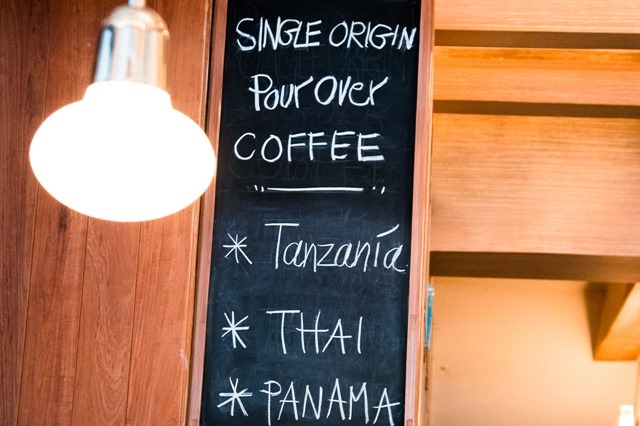 SINGLE ORIGIN
Pour Over
COFFEE
* Tanzanía
* THAI
* PANAMA